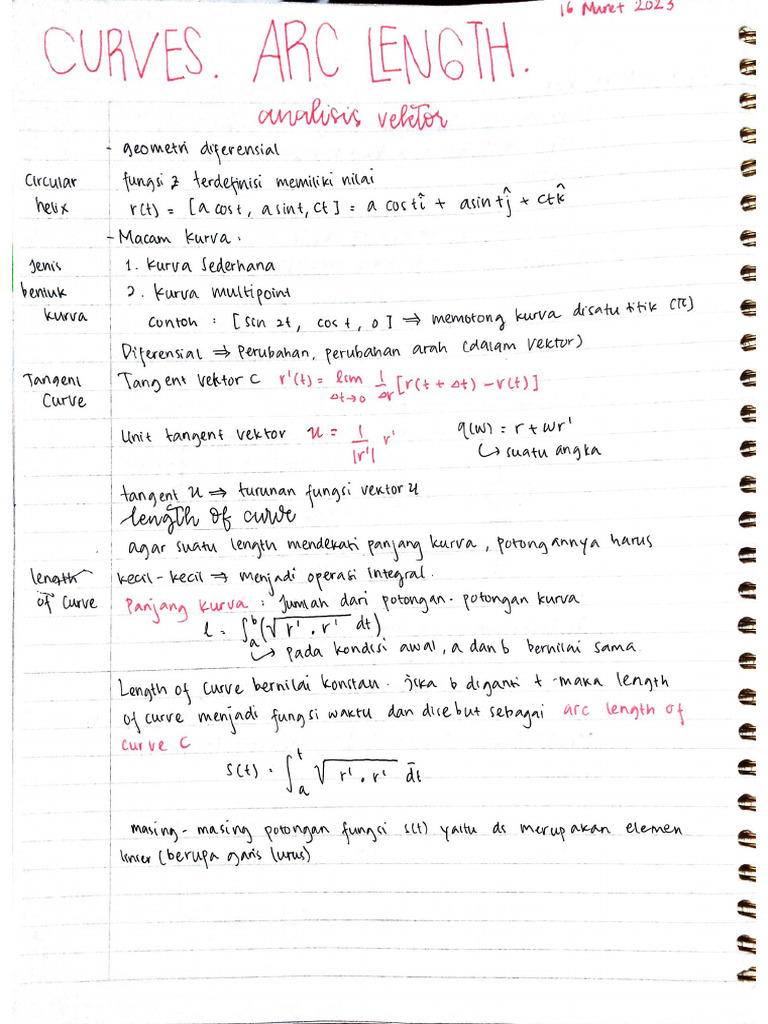 16 Maret 2023
CURVES. ARC LENGTH.
analisis vektor
- geometri diferensial
Circular helix
fungsi z terdefinisi memiliki nilai
r(t) = [a cost, a sint, ct] = a cost î + a sint ĵ + ct k̂
- Macam kurva :
Jenis bentuk kurva
1. kurva sederhana
2. kurva multipoint
contoh : [sin 2t, cos t, 0] ⇒ memotong kurva disatu titik (π)
Diferensial ⇒ perubahan, perubahan arah (dalam vektor)
Tangent Curve
Tangent vektor C r'(t) = lim Δt→0 1/Δr [r(t + Δt) - r(t)]
Unit tangent vektor u = 1/|r'| r' q(w) = r + wr'
↳ suatu angka
tangent u ⇒ turunan fungsi vektor u
length of curve
agar suatu length mendekati panjang kurva, potongannya harus
length of curve
kecil-kecil ⇒ menjadi operasi integral.
Panjang kurva : Jumlah dari potongan-potongan kurva
l = ∫ₐᵇ (√r' . r' dt)
↳ pada kondisi awal, a dan b bernilai sama
Length of curve bernilai konstan. jika b diganti t - maka length
of curve menjadi fungsi waktu dan disebut sebagai arc length of
curve C
s(t) = ∫ₐᵗ √r' . r' dt̄
masing-masing potongan fungsi s(t) yaitu ds merupakan elemen
linier (berupa garis lurus)